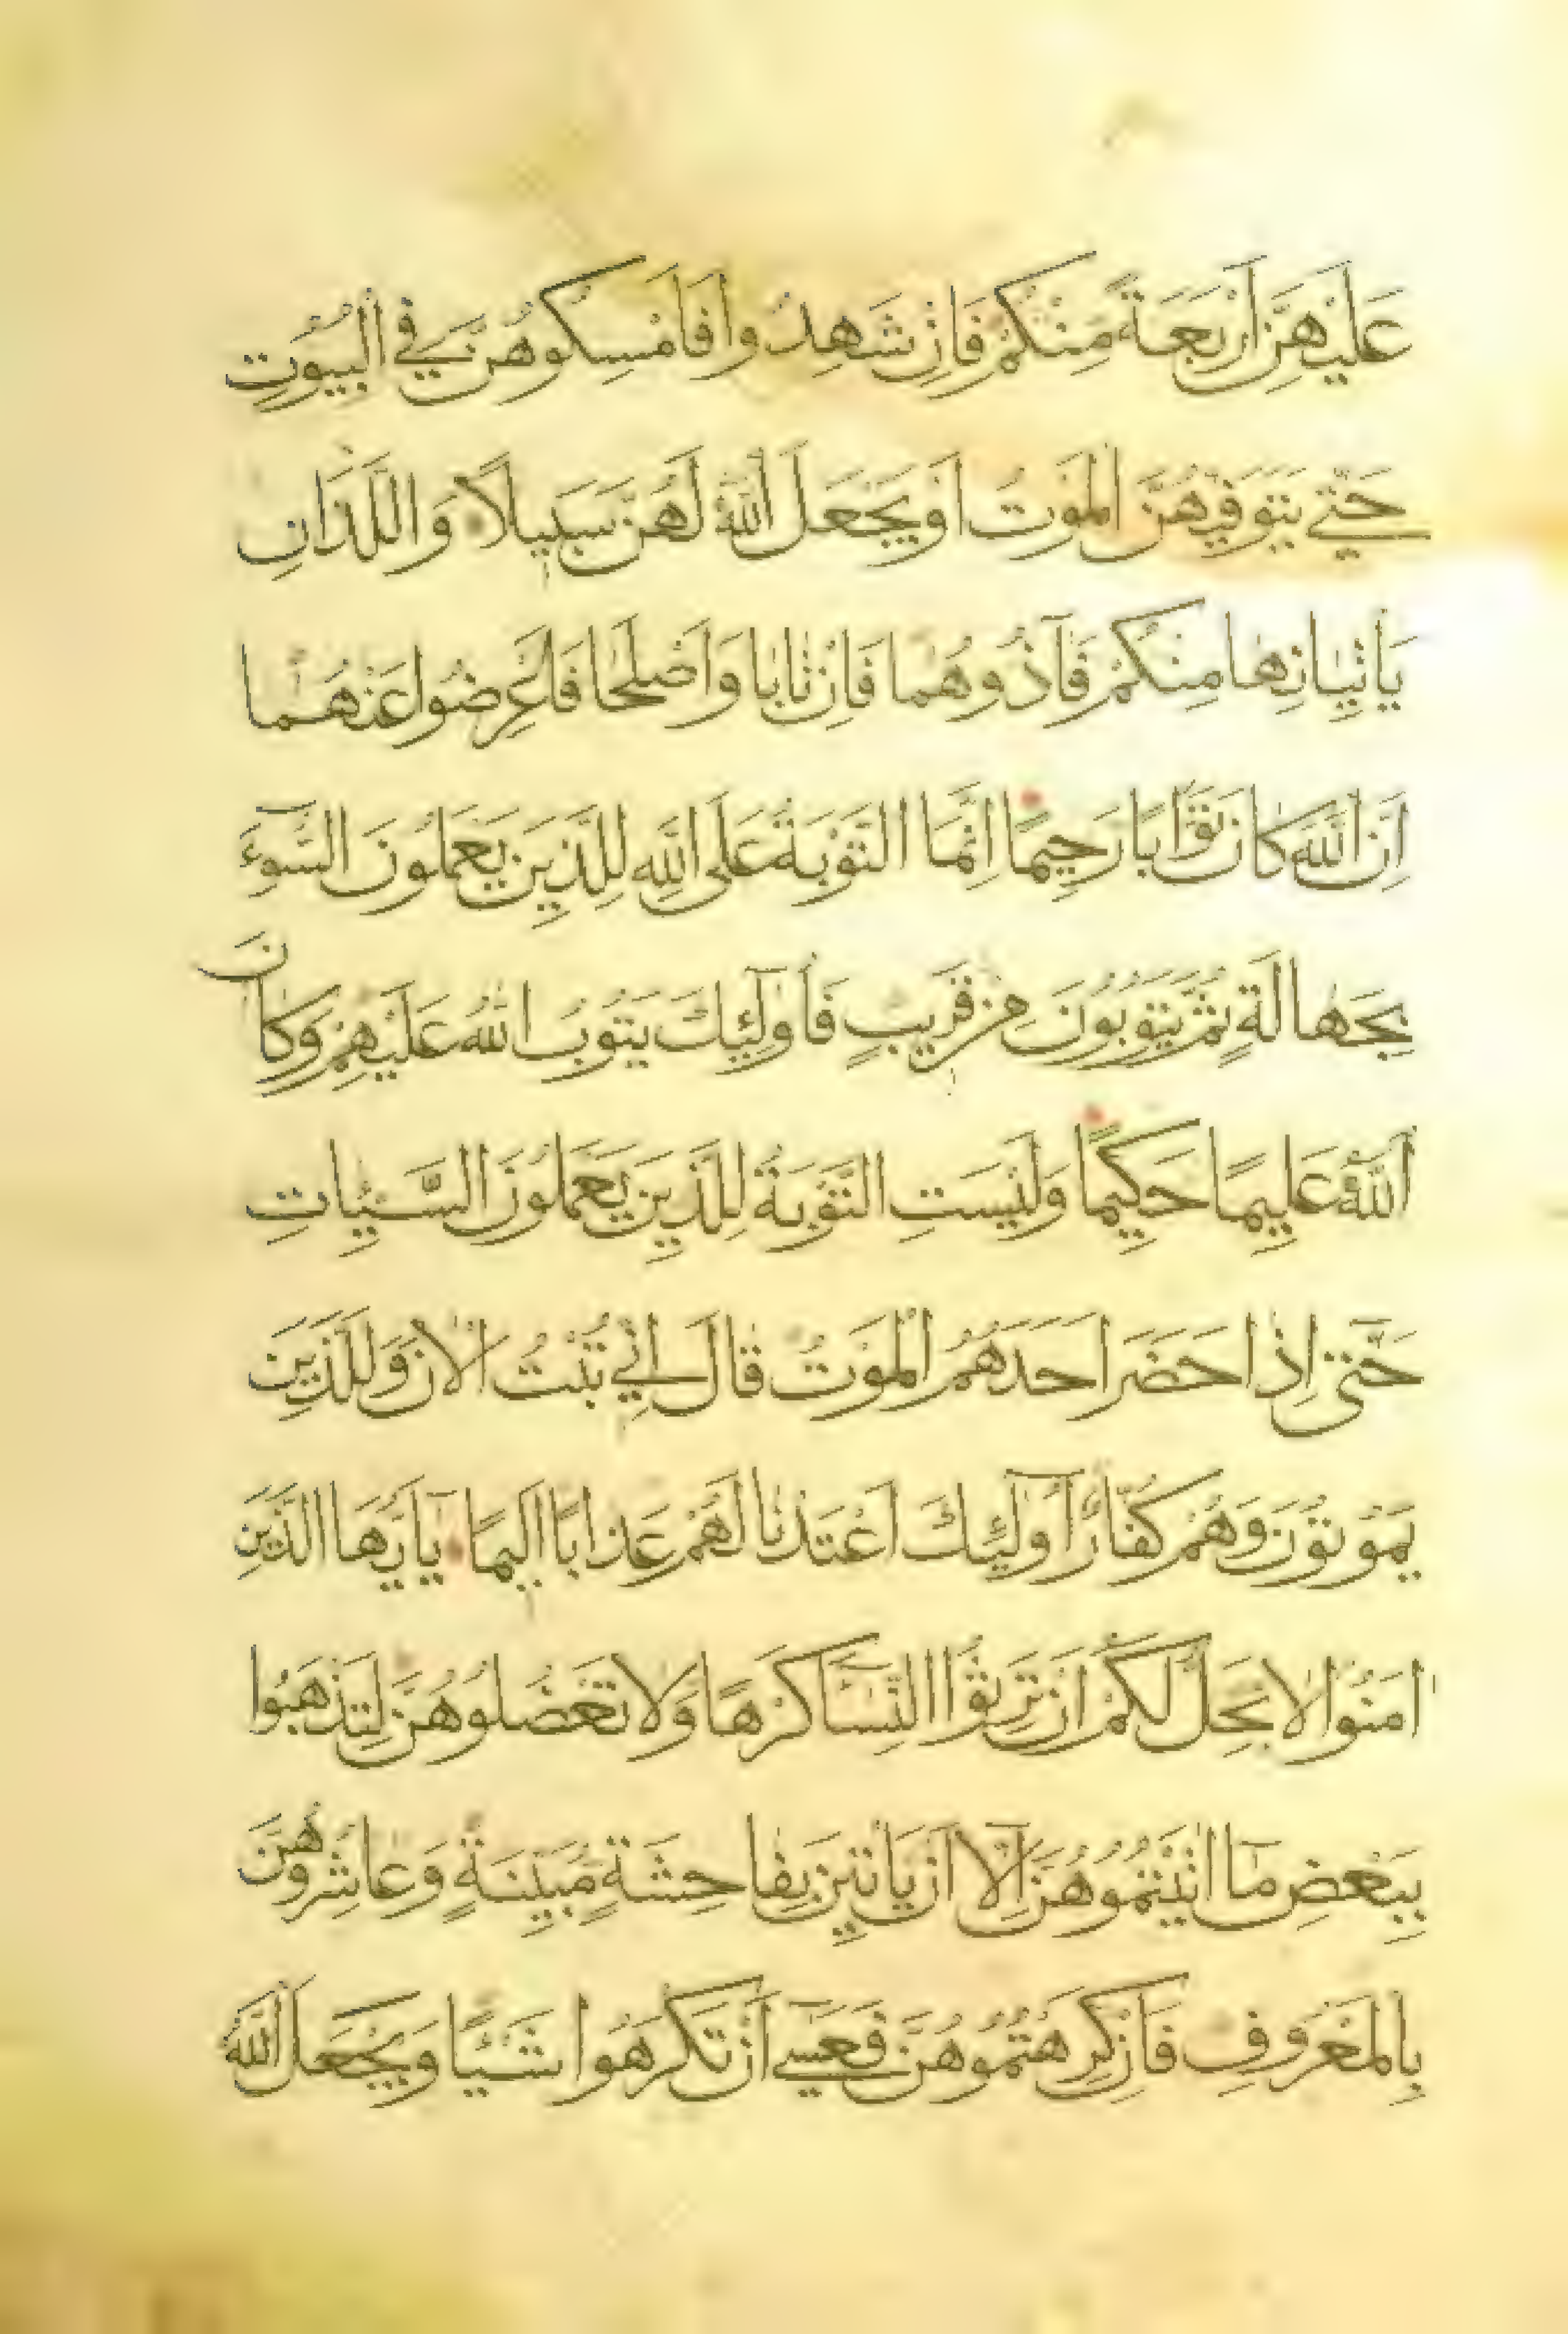 عَلَيْهِنَّ اَرْبَعَةً مِنْكُمْ فَاِنْ شَهِدُوا فَاَمْسِكُوهُنَّ فِي الْبُيُوتِ
حَتّٰي يَتَوَفّٰيهُنَّ الْمَوْتُ اَوْ يَجْعَلَ اللّٰهُ لَهُنَّ سَبِيلًا وَاللَّذَانِ
يَاْتِيَانِهَا مِنْكُمْ فَآذُوهُمَا فَاِنْ تَابَا وَاَصْلَحَا فَاَعْرِضُوا عَنْهُمَا
اِنَّ اللّٰهَ كَانَ تَوَّابًا رَحِيمًا اِنَّمَا التَّوْبَةُ عَلَى اللّٰهِ لِلَّذِينَ يَعْمَلُونَ السُّوٓءَ
بِجَهَالَةٍ ثُمَّ يَتُوبُونَ مِنْ قَرِيبٍ فَاُولٰٓئِكَ يَتُوبُ اللّٰهُ عَلَيْهِمْ وَكَانَ
اللّٰهُ عَلِيمًا حَكِيمًا وَلَيْسَتِ التَّوْبَةُ لِلَّذِينَ يَعْمَلُونَ السَّيِّئَاتِ
حَتّٰىٓ اِذَا حَضَرَ اَحَدَهُمُ الْمَوْتُ قَالَ اِنِّي تُبْتُ الْاٰنَ وَلَا الَّذِينَ
يَمُوتُونَ وَهُمْ كُفَّارٌ اُولٰٓئِكَ اَعْتَدْنَا لَهُمْ عَذَابًا اَلِيمًا يَٓا اَيُّهَا الَّذِينَ
اٰمَنُوا لَا يَحِلُّ لَكُمْ اَنْ تَرِثُوا النِّسَٓاءَ كَرْهًا وَلَا تَعْضُلُوهُنَّ لِتَذْهَبُوا
بِبَعْضِ مَٓا اٰتَيْتُمُوهُنَّ اِلَّٓا اَنْ يَاْتِينَ بِفَاحِشَةٍ مُبَيِّنَةٍ وَعَاشِرُوهُنَّ
بِالْمَعْرُوفِ فَاِنْ كَرِهْتُمُوهُنَّ فَعَسٰٓي اَنْ تَكْرَهُوا شَيْئًا وَيَجْعَلَ اللّٰهُ